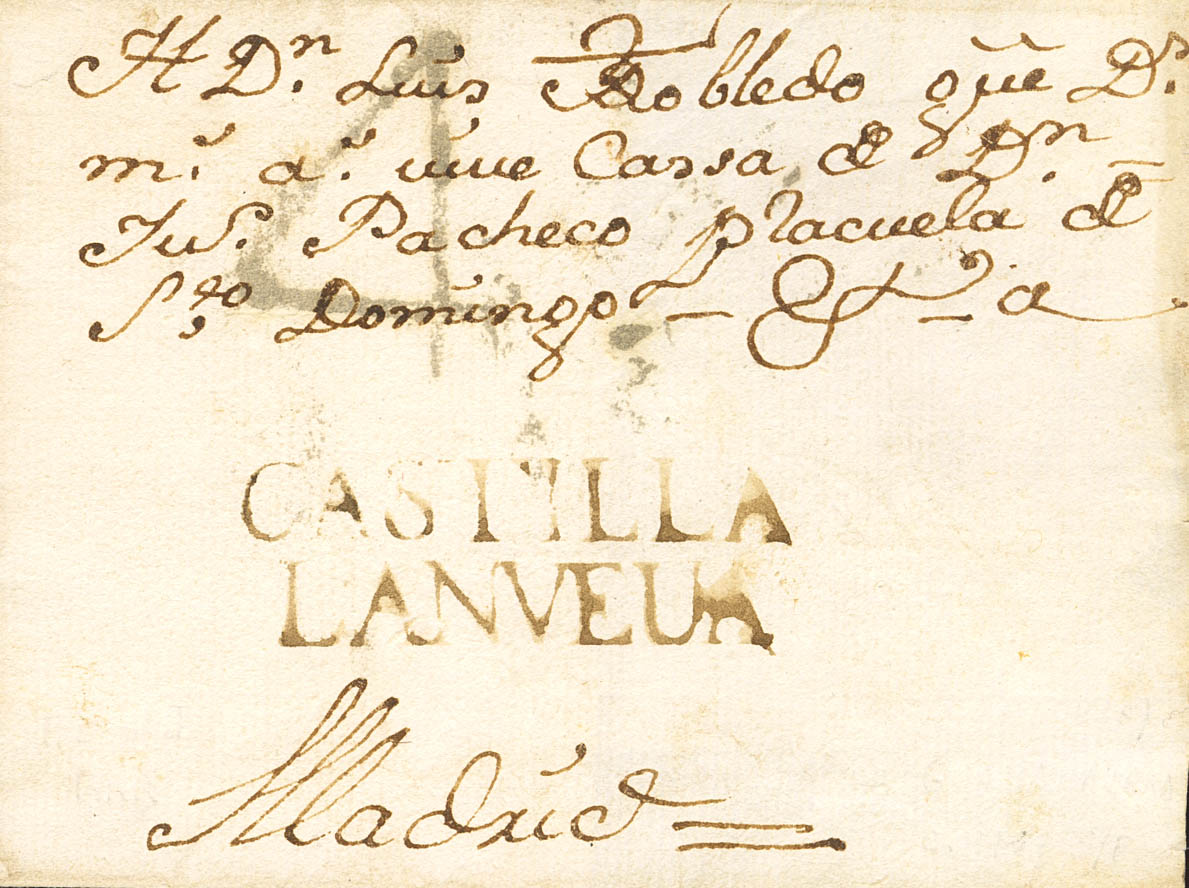 A Dn. Luis Robledo que Ds.
m.s a.s vive Cassa de Dn.
Ju.o Pacheco placuela de
S.to Domingo –
4
CASTILLA
LANUEUA
Madrid